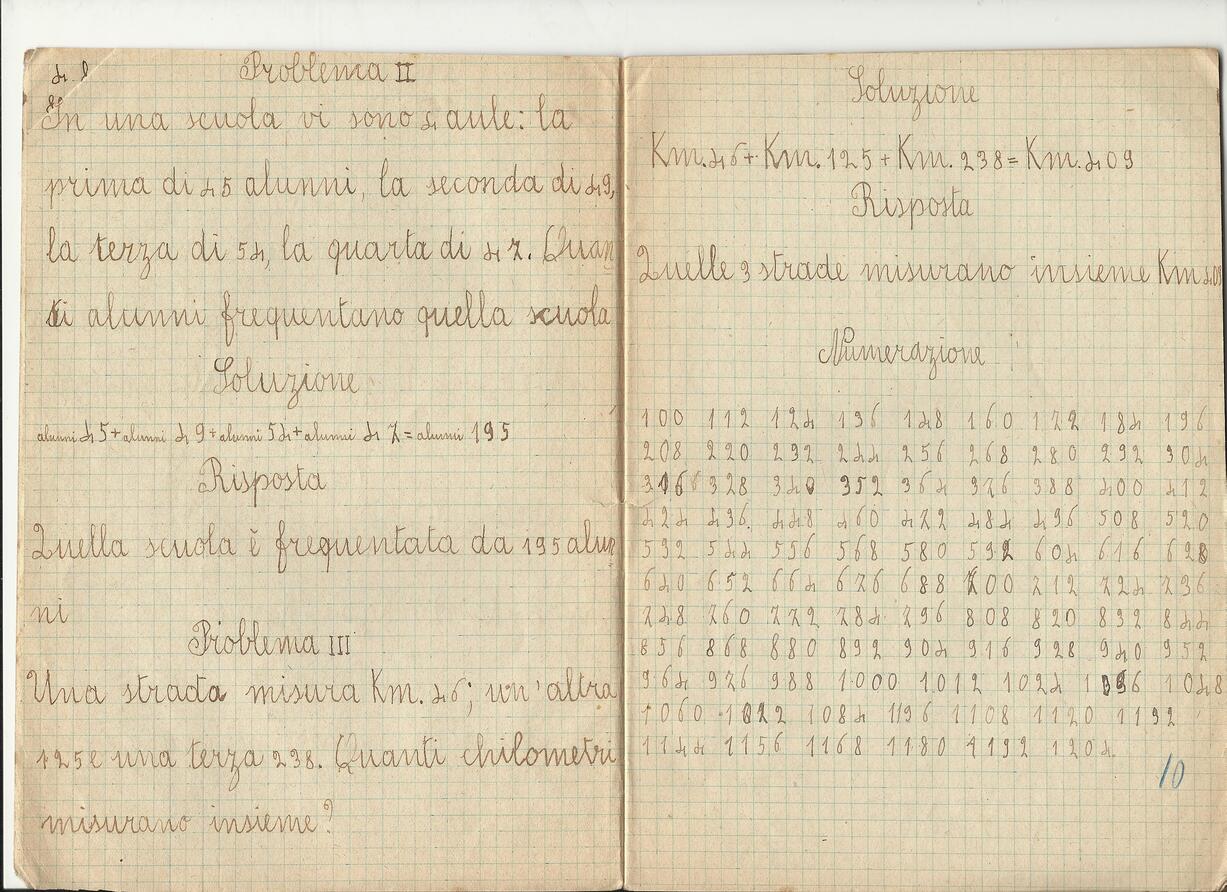 Problema II
In una scuola vi sono 4 aule: la
prima di 45 alunni, la seconda di 49,
la terza di 54, la quarta di 47. Quan
ti alunni frequentano quella scuola
Soluzione
alunni 45+alunni 49+alunni 54+alunni 47=alunni 195
Risposta
Quella scuola è frequentata da 195 alun
ni
Problema III
Una strada misura Km. 46; un'altra
125 e una terza 238. Quanti chilometri
misurano insieme?
Soluzione
Km. 46+Km. 125+Km. 238=Km. 409
Risposta
Quelle 3 strade misurano insieme Km 409
Numerazione
100 112 124 136 148 160 172 184 196
208 220 232 244 256 268 280 292 304
316 328 340 352 364 376 388 400 412
424 436. 448 460 472 484 496 508 520
532 544 556 568 580 592 604 616 628
640 652 664 676 688 700 712 724 736
748 760 772 784 796 808 820 832 844
856 868 880 892 904 916 928 940 952
964 976 988 1000 1012 1024 1036 1048
1060 1072 1084 1196 1108 1120 1132
1144 1156 1168 1180 1192 1204.
10